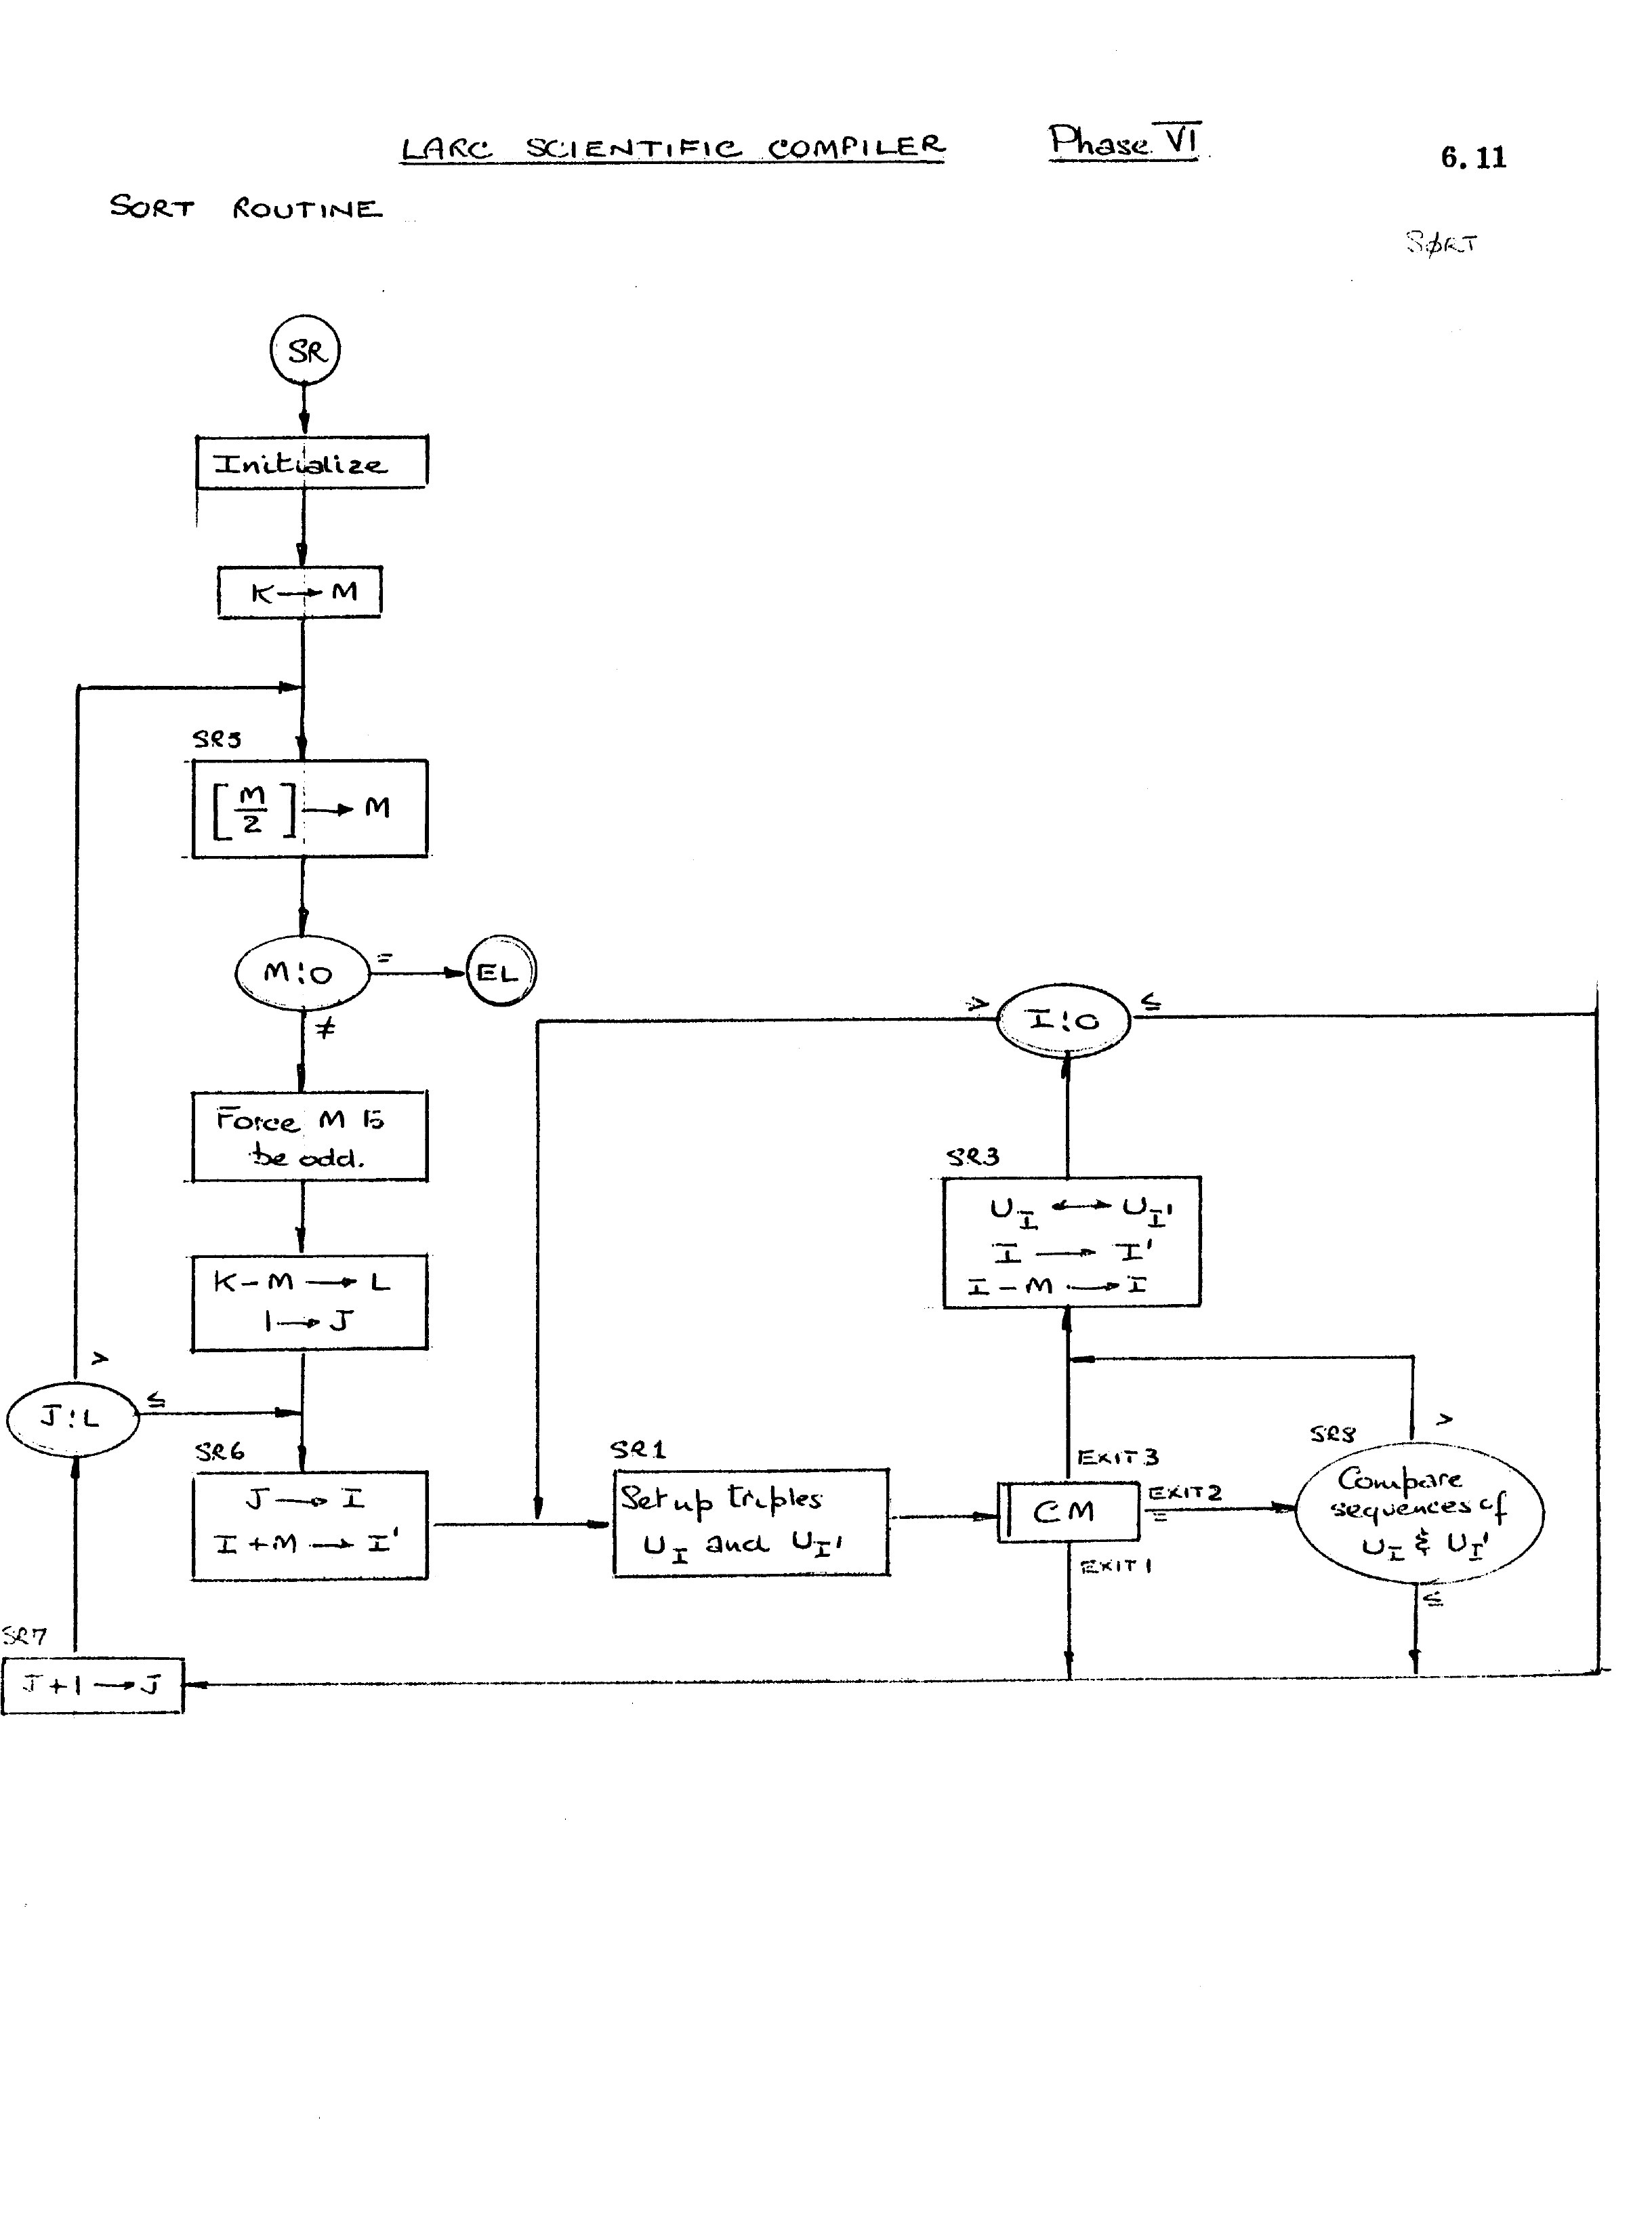 LARC SCIENTIFIC COMPILER Phase VI
6.11
SORT ROUTINE
SØRT
SR
Initialize
K → M
SR5
[M/2] → M
M:0
=
EL
≠
Force M to
be odd.
K-M → L
1 → J
>
J:L
≤
SR6
J → I
I+M → I'
SR7
J+1 → J
SR1
Set up triples
U_I and U_I'
>
I:0
≤
SR3
U_I ↔ U_I'
I → I'
I-M → I
EXIT 3
CM
EXIT 2
=
EXIT 1
SR8
>
Compare
sequences of
U_I & U_I'
≤